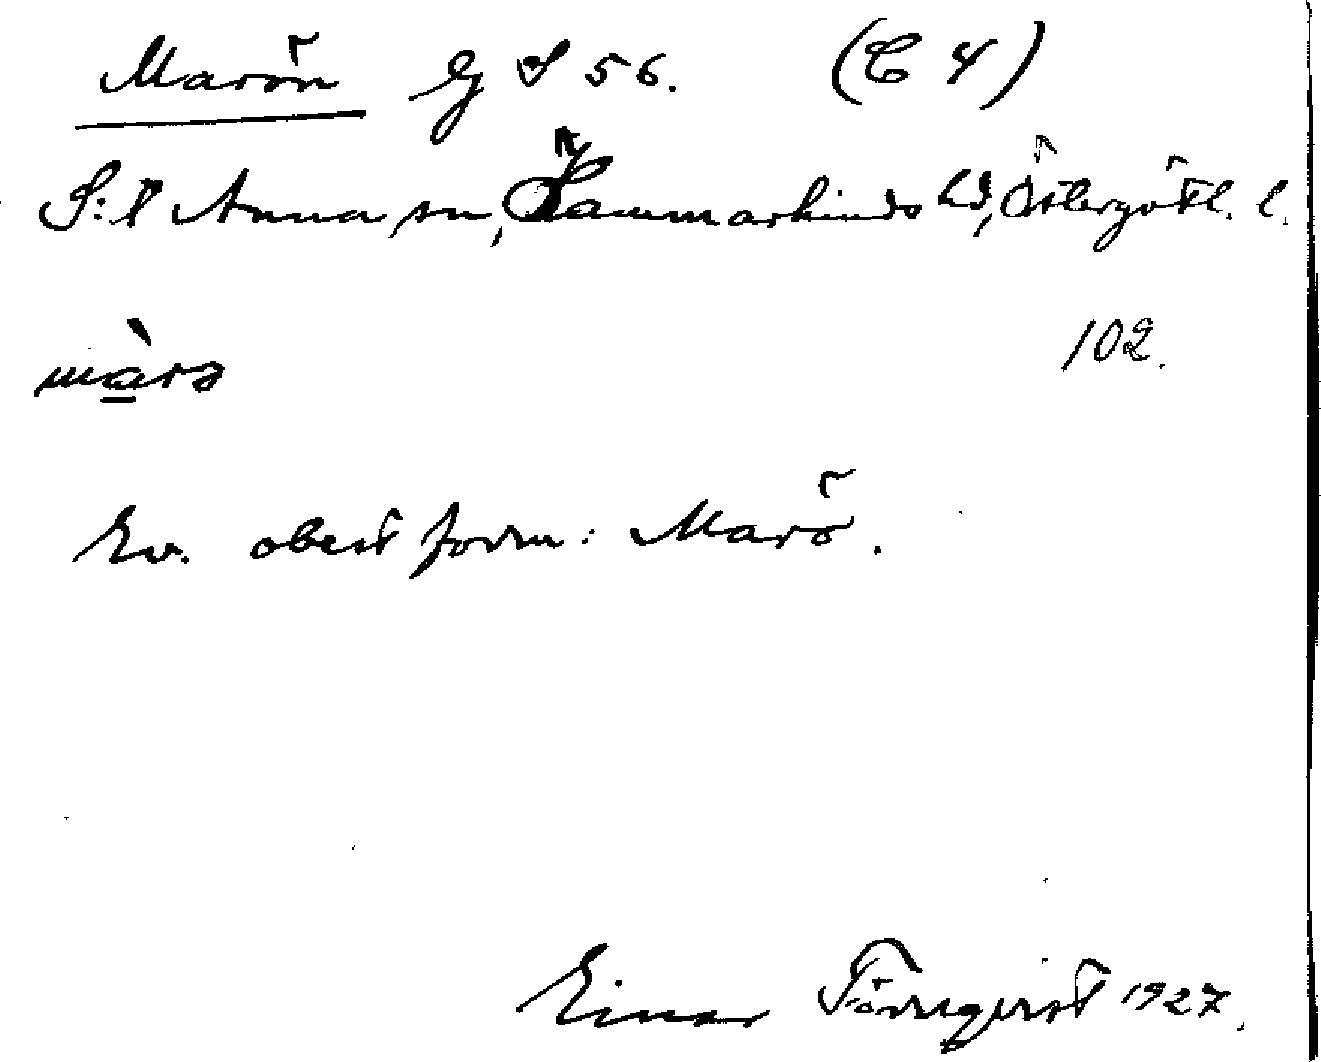 Marön Gj S 56. (C 4)
S:t Anna sn, Hammarkinds hd, Östergötl. l.
102.
màrə
Ev. obest form: Marö.
Einar Törnqvist 1927.